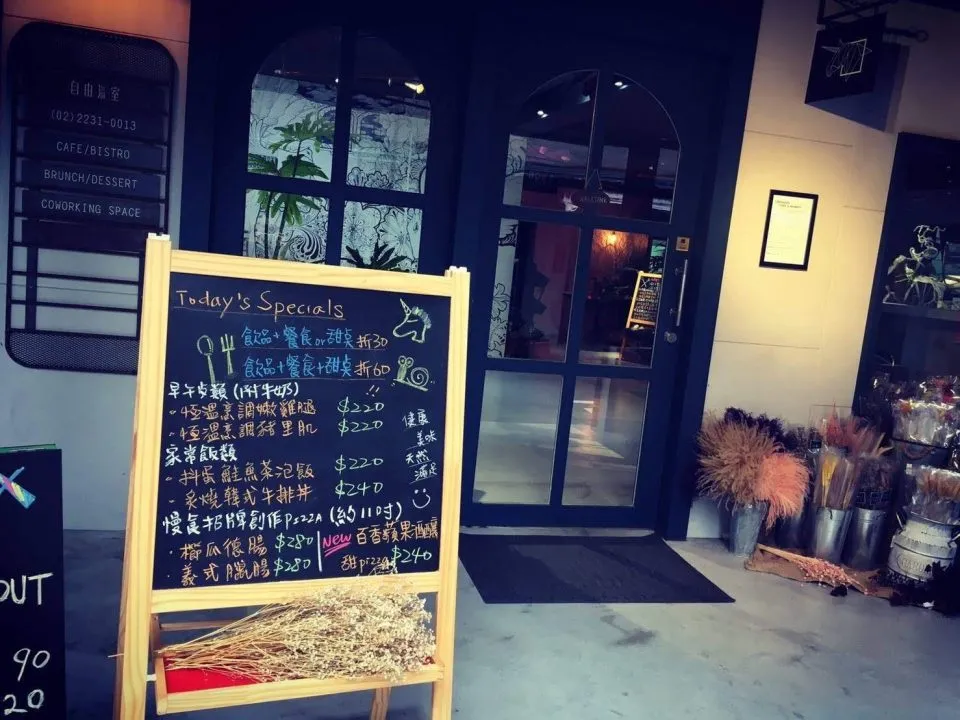 自由溫室
(02)2231-0013
CAFE/BISTRO
BRUNCH/DESSERT
COWORKING SPACE
Today's Specials
飲品+餐食or甜点 折30
飲品+餐食+甜点 折60
早午点類(附牛奶)
·恆溫烹調嫩雞腿 $220
·恆溫烹調豬里肌 $220
家常飯類
·抖蛋鮭魚茶泡飯 $220
·炙燒韓式牛排丼 $240
慢食招牌創作PIZZA(約11吋)
·櫛瓜德腸 $280
·義式臘腸 $280
New 百香蘋果酒釀
甜pizza $240
健康
美味
天然
滿足
OUT
90
20
WELCOME